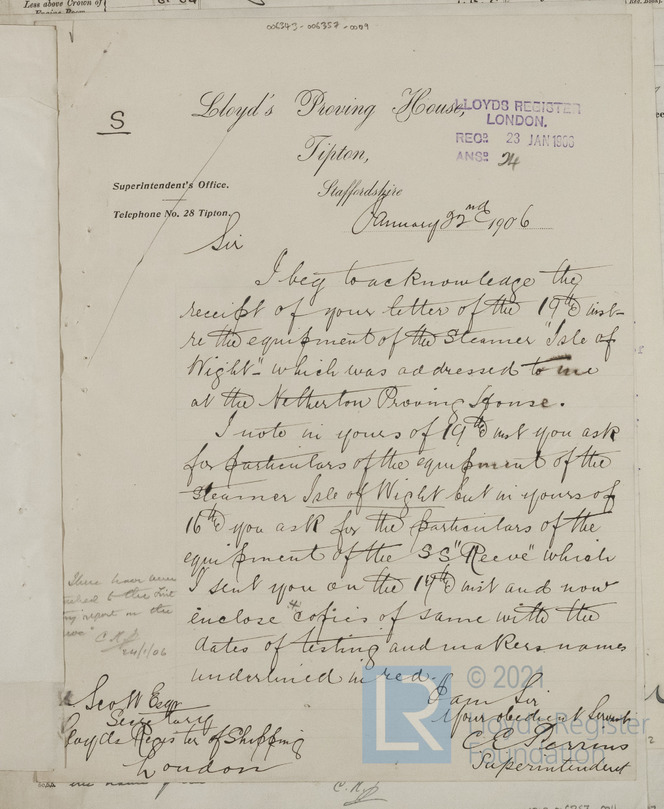 Less above Crown of
006343-006357-0009
S
Lloyd's Proving House,
Tipton,
Staffordshire
LLOYDS REGISTER
LONDON.
RECD 23 JAN 1906
ANSD 24
Superintendent's Office.
Telephone No. 28 Tipton.
January 22nd 1906
Sir
I beg to acknowledge the
receipt of your letter of the 19th inst-
re the equipment of the Steamer "Isle of
Wight" which was addressed to me
at the Netherton Proving House.
I note in yours of 19th inst you ask
for particulars of the equipment of the
Steamer Isle of Wight but in yours of
16th you ask for the particulars of the
equipment of the SS "Reeve" which
I sent you on the 17th inst and now
enclose copies of same with the
dates of testing and makers names
underlined in red.
I am Sir
Your obedient Servant
C E Perrins
Superintendent
Scott Esqr
Secretary
Lloyds Register of Shipping
London
These have been
to the List
report on the
24/1/06
© 2021
Lloyd's Register
Foundation
LR